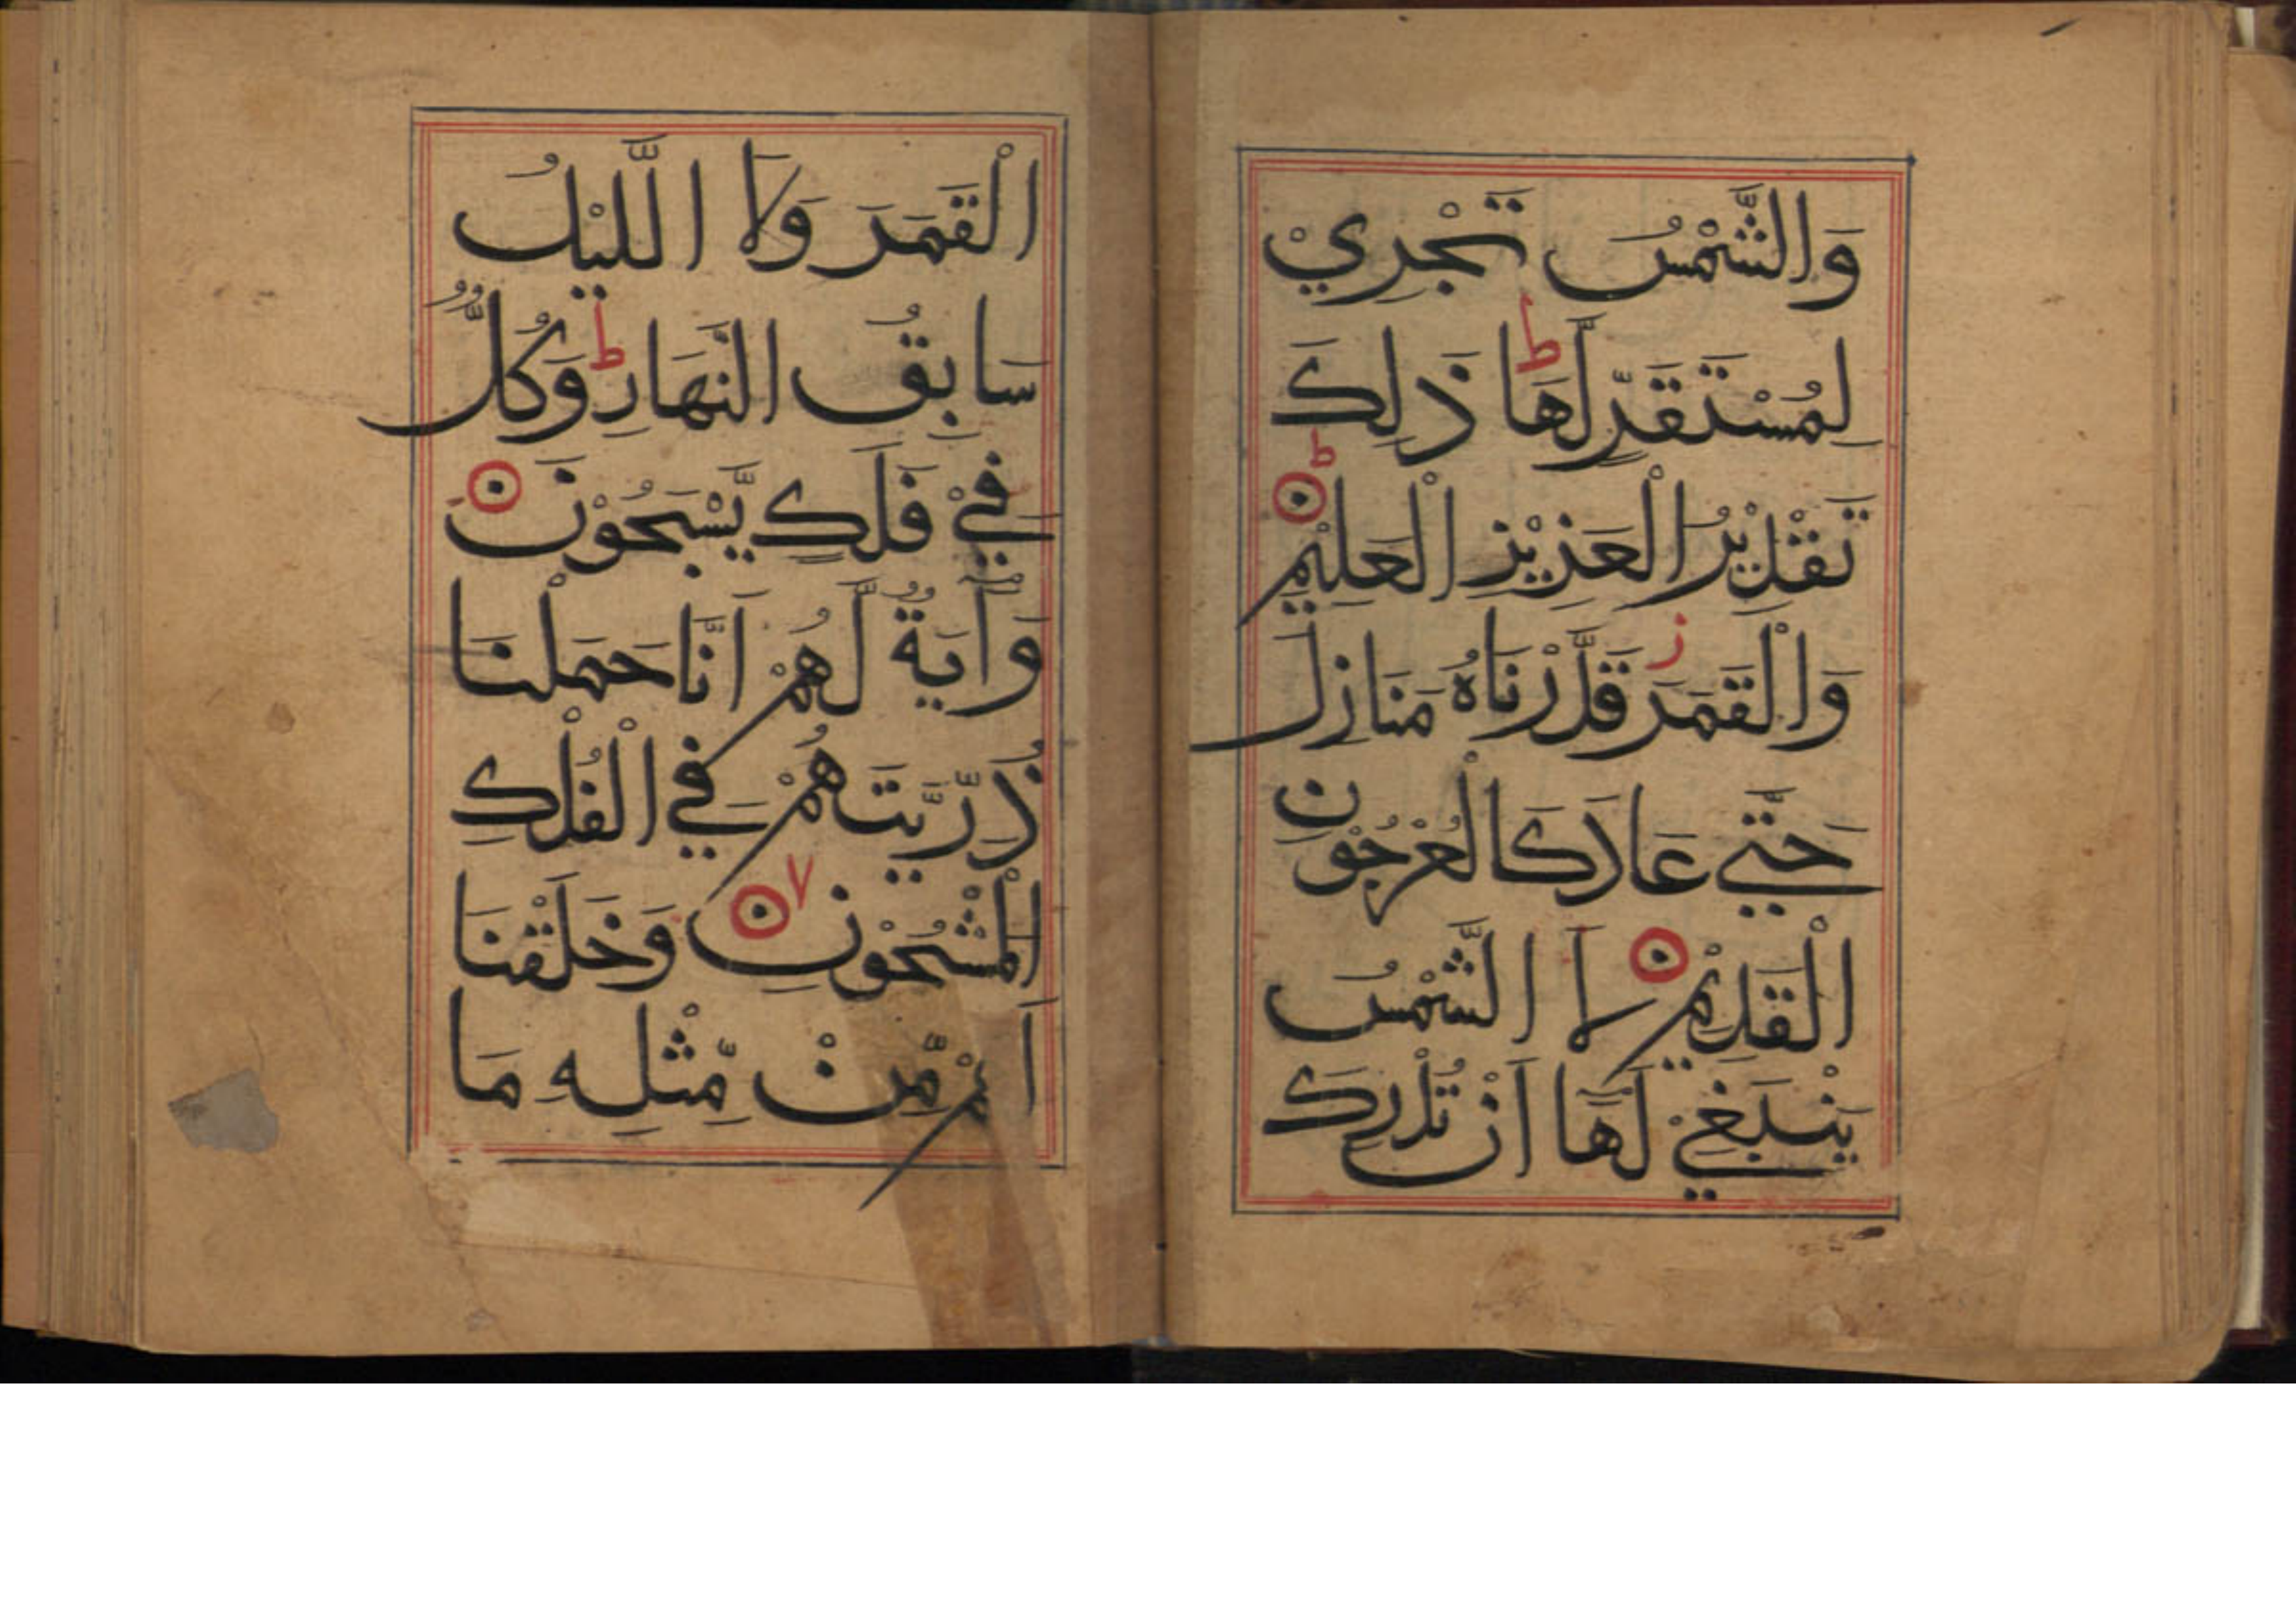 وَالشَّمْسُ تَجْرِيْ
لِمُسْتَقَرٍّ لَّهَا ط ذَلِكَ
تَقْدِيْرُ الْعَزِيْزِ الْعَلِيْمِ ط
وَالْقَمَرَ ز قَدَّرْنَاهُ مَنَازِلَ
حَتّٰي عَادَ كَالْعُرْجُوْنِ
الْقَدِيْمِ لَا الشَّمْسُ
يَنْبَغِيْ لَهَا اَنْ تُدْرِكَ
الْقَمَرَ وَلَا الَّليْلُ
سَابِقُ النَّهَارِ ط وَكُلٌّ
فِيْ فَلَكٍ يَّسْبَحُوْنَ
وَآيَةٌ لَّهُمْ اَنَّا حَمَلْنَا
ذُرِّيَّتَهُمْ فِي الْفُلْكِ
الْمَشْحُوْنِ ٧ وَخَلَقْنَا
لَهُمْ مِّنْ مِّثْلِهِ مَا